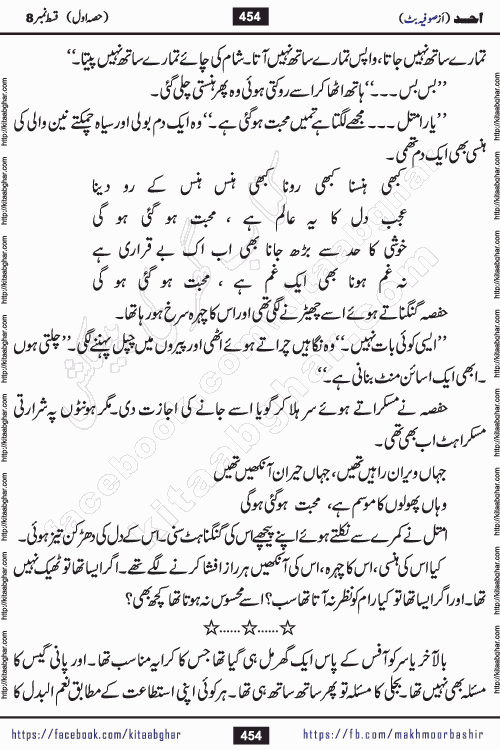 احد (از صوفیہ بٹ) 454 (حصہ اول) قسط نمبر 8
تمہارے ساتھ نہیں جاتا، واپس تمہارے ساتھ نہیں آتا۔ شام کی چائے تمہارے ساتھ نہیں پیتا۔‘‘
’’بس بس ۔۔۔‘‘ ہاتھ اٹھا کر اسے روکتی ہوئی وہ پھر ہنستی چلی گئی۔
’’یار امثل ۔۔۔ مجھے لگتا ہے تمہیں محبت ہو گئی ہے۔‘‘ وہ ایک دم بولی اور سیاہ چمکتے نین والی کی
ہنسی بھی ایک دم تھمی۔
کبھی ہنسنا کبھی رونا کبھی ہنس ہنس کے رو دینا
عجب دل کا یہ عالم ہے ، محبت ہو گئی ہو گی
خوشی کا حد سے بڑھ جانا بھی اب اک بے قراری ہے
نہ غم ہونا بھی ایک غم ہے ، محبت ہو گئی ہو گی
حفصہ گنگناتے ہوئے اسے چھیڑنے لگی تھی اور اس کا چہرہ سرخ ہو رہا تھا۔
’’ایسی کوئی بات نہیں۔‘‘ وہ نگاہیں چراتے ہوئے اٹھی اور پیروں میں چپل پہننے لگی۔ ’’چلتی ہوں
۔ ابھی ایک اسائن منٹ بنانی ہے۔‘‘
حفصہ نے مسکراتے ہوئے سر ہلا کر گویا اسے جانے کی اجازت دی۔ مگر ہونٹوں پہ شرارتی
مسکراہٹ اب بھی تھی۔
جہاں ویران راہیں تھیں، جہاں حیران آنکھیں تھیں
وہاں پھولوں کا موسم ہے، محبت ہو گئی ہو گی
امثل نے کمرے سے نکلتے ہوئے اپنے پیچھے اس کی گنگناہٹ سنی۔ اس کے دل کی دھڑکن تیز ہوئی۔
کیا اس کی ہنسی، اس کا چہرہ، اس کی آنکھیں ہر راز افشا کرنے لگے تھے۔ اگر ایسا تھا تو ٹھیک نہیں
تھا۔ اور اگر ایسا تھا تو کیا رام کو نظر نہ آتا تھا سب؟ اسے محسوس نہ ہوتا تھا کچھ بھی؟
☆......☆......☆
بالآخر یاسر کو آفس کے پاس ایک گھر مل ہی گیا تھا جس کا کرایہ مناسب تھا۔ اور پانی گیس کا
مسئلہ بھی نہیں تھا۔ بجلی کا مسئلہ تو پھر ساتھ ساتھ ہی تھا۔ ہر کوئی اپنی استطاعت کے مطابق نعم البدل کا
https://facebook.com/kitaabghar 454 https://fb.com/makhmoorbashir
http://kitaabghar.com
facebook.com/kitaabghar